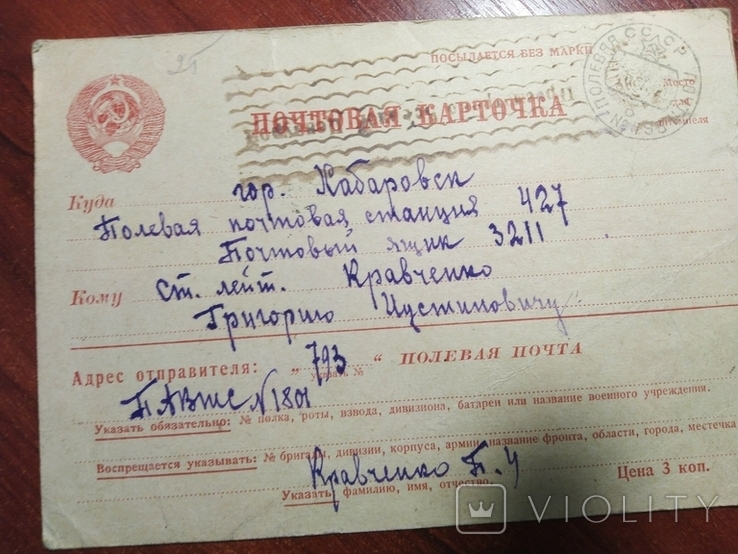 25
ПОСЫЛАЕТСЯ БЕЗ МАРКИ
ПОЛЕВАЯ СССР
Место
для
штемпеля
ПОЧТОВАЯ КАРТОЧКА
Куда гор. Хабаровск
Полевая почтовая станция 427
Почтовый ящик 3211
Кому ст. лейт. Кравченко
Григорию Иустиновичу
Адрес отправителя: „ 793 “ ПОЛЕВАЯ ПОЧТА
указать №
ПАВШС № 18
Указать обязательно: № полка, роты, взвода, дивизиона, батареи или название военного учреждения.
Воспрещается указывать: № бригады, дивизии, корпуса, армии, название фронта, области, города, местечка
Кравченко П. И
Указать фамилию, имя, отчество.
Цена 3 коп.
VIOLITY